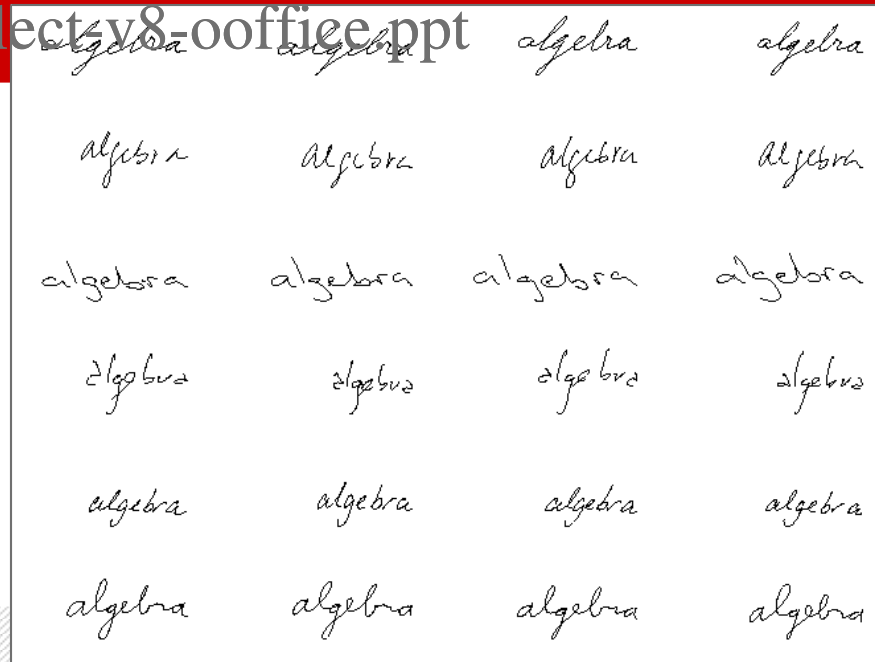 lect-v8-ooffice.ppt
algebra algebra algebra algebra
algebra algebra algebra algebra
algebra algebra algebra algebra
algebra algebra algebra algebra
algebra algebra algebra algebra
algebra algebra algebra algebra